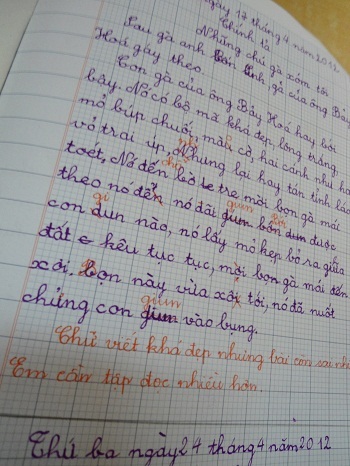 ngày 17 tháng 4 năm 2012
Chính tả
Những chú gà xóm tôi
Sau gà anh Bốn Linh, gà của ông Bảy
Hoá gáy theo.
Con gà của ông Bảy Hoá hay bới
bậy. Nó có bộ mã khá đẹp, lông trắng,
mỏ búp chuối, mào cờ, hai cánh như ha
vỏ trai úp, Nhưng lại hay tán tỉnh láo
toét, Nó đến bờ tre mời bọn gà mái
theo nó đến, nó đãi giun bốn được
con dun nào, nó lấy mỏ kẹp bỏ ra giữa
đất kêu tục tục, mời bọn gà mái đến
xơi. Bọn này vừa xới tới, nó đã nuốt
chửng con giun vào bụng.
Chữ viết khá đẹp nhưng bài còn sai nhi
Em cần tập đọc nhiều hơn.
Thứ ba ngày 24 tháng 4 năm 2012